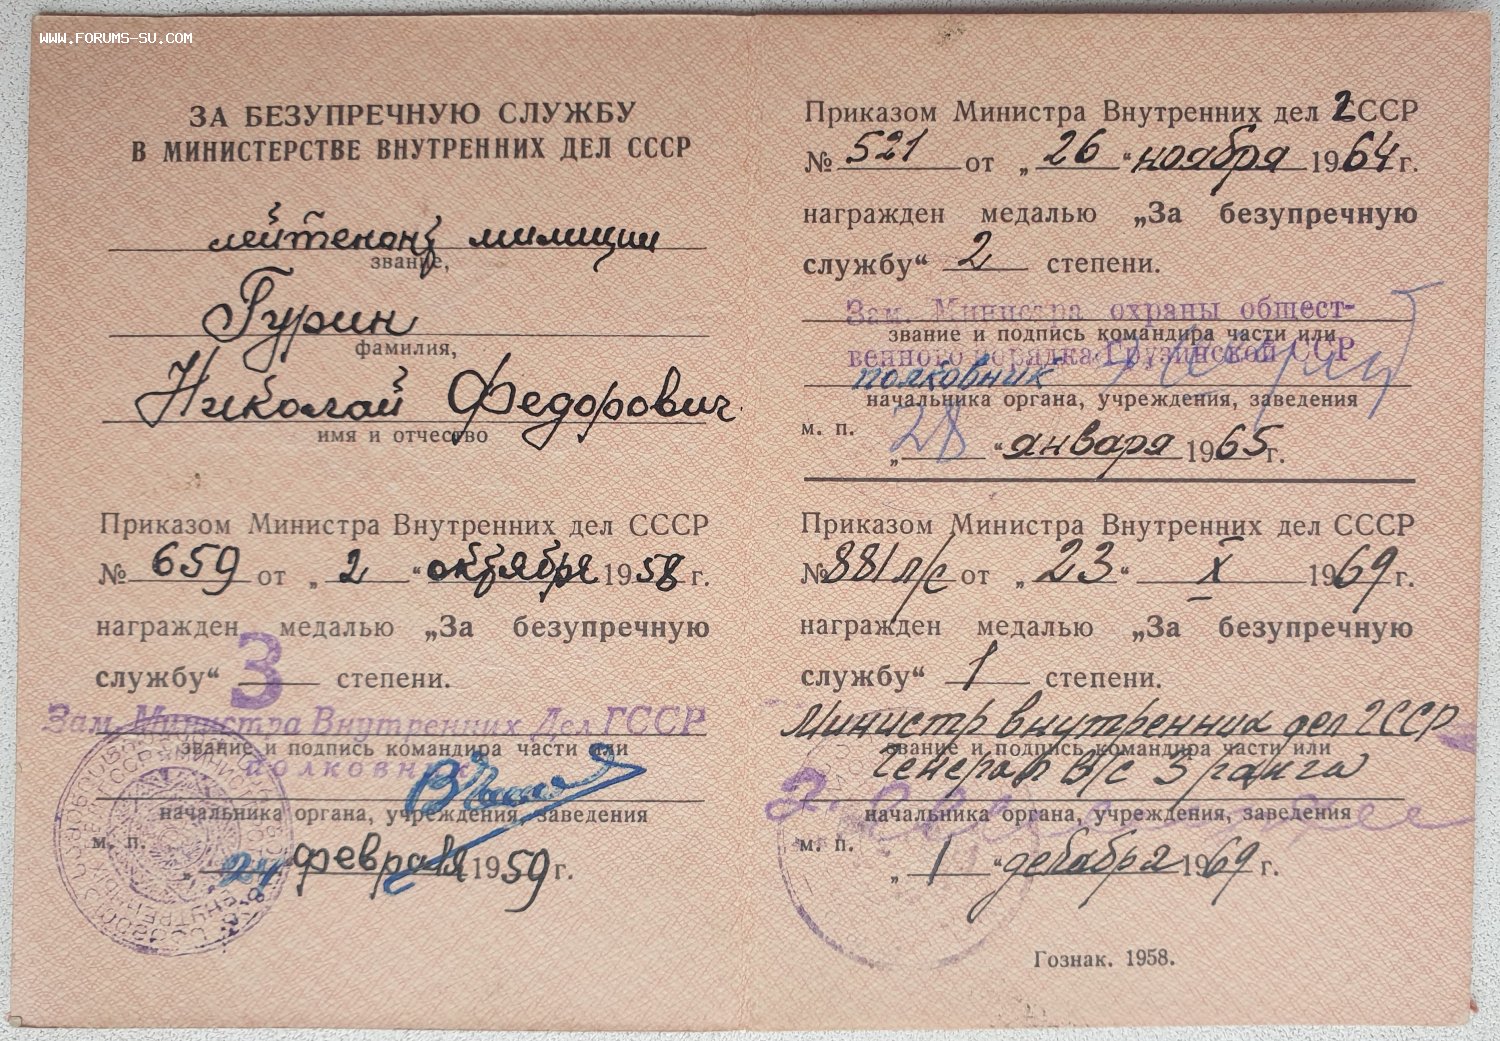 WWW.FORUMS-SU.COM
ЗА БЕЗУПРЕЧНУЮ СЛУЖБУ
В МИНИСТЕРСТВЕ ВНУТРЕННИХ ДЕЛ СССР
лейтенант милиции
звание,
Гурин
фамилия,
Николай Федорович
имя и отчество
Приказом Министра Внутренних дел СССР
№ 659 от „ 2 “ октября 1958 г.
награжден медалью „За безупречную
службу“ 3 степени.
Зам. Министра Внутренних Дел ГССР
звание и подпись командира части или
полковник
начальника органа, учреждения, заведения
м. п.
„ 24 “ февраля 1959 г.
Приказом Министра Внутренних дел ГССР
№ 521 от „ 26 “ ноября 1964 г.
награжден медалью „За безупречную
службу“ 2 степени.
Зам. Министра охраны общест-
звание и подпись командира части или
венного порядка Грузинской ССР
полковник
начальника органа, учреждения, заведения
м. п.
„ 28 “ января 1965 г.
Приказом Министра Внутренних дел СССР
№ 881 л/с от „ 23 “ X 1969 г.
награжден медалью „За безупречную
службу“ 1 степени.
Министр внутренних дел ГССР
звание и подпись командира части или
Генерал в/с 3 ранга
начальника органа, учреждения, заведения
м. п.
„ 1 “ декабря 1969 г.
Гознак. 1958.